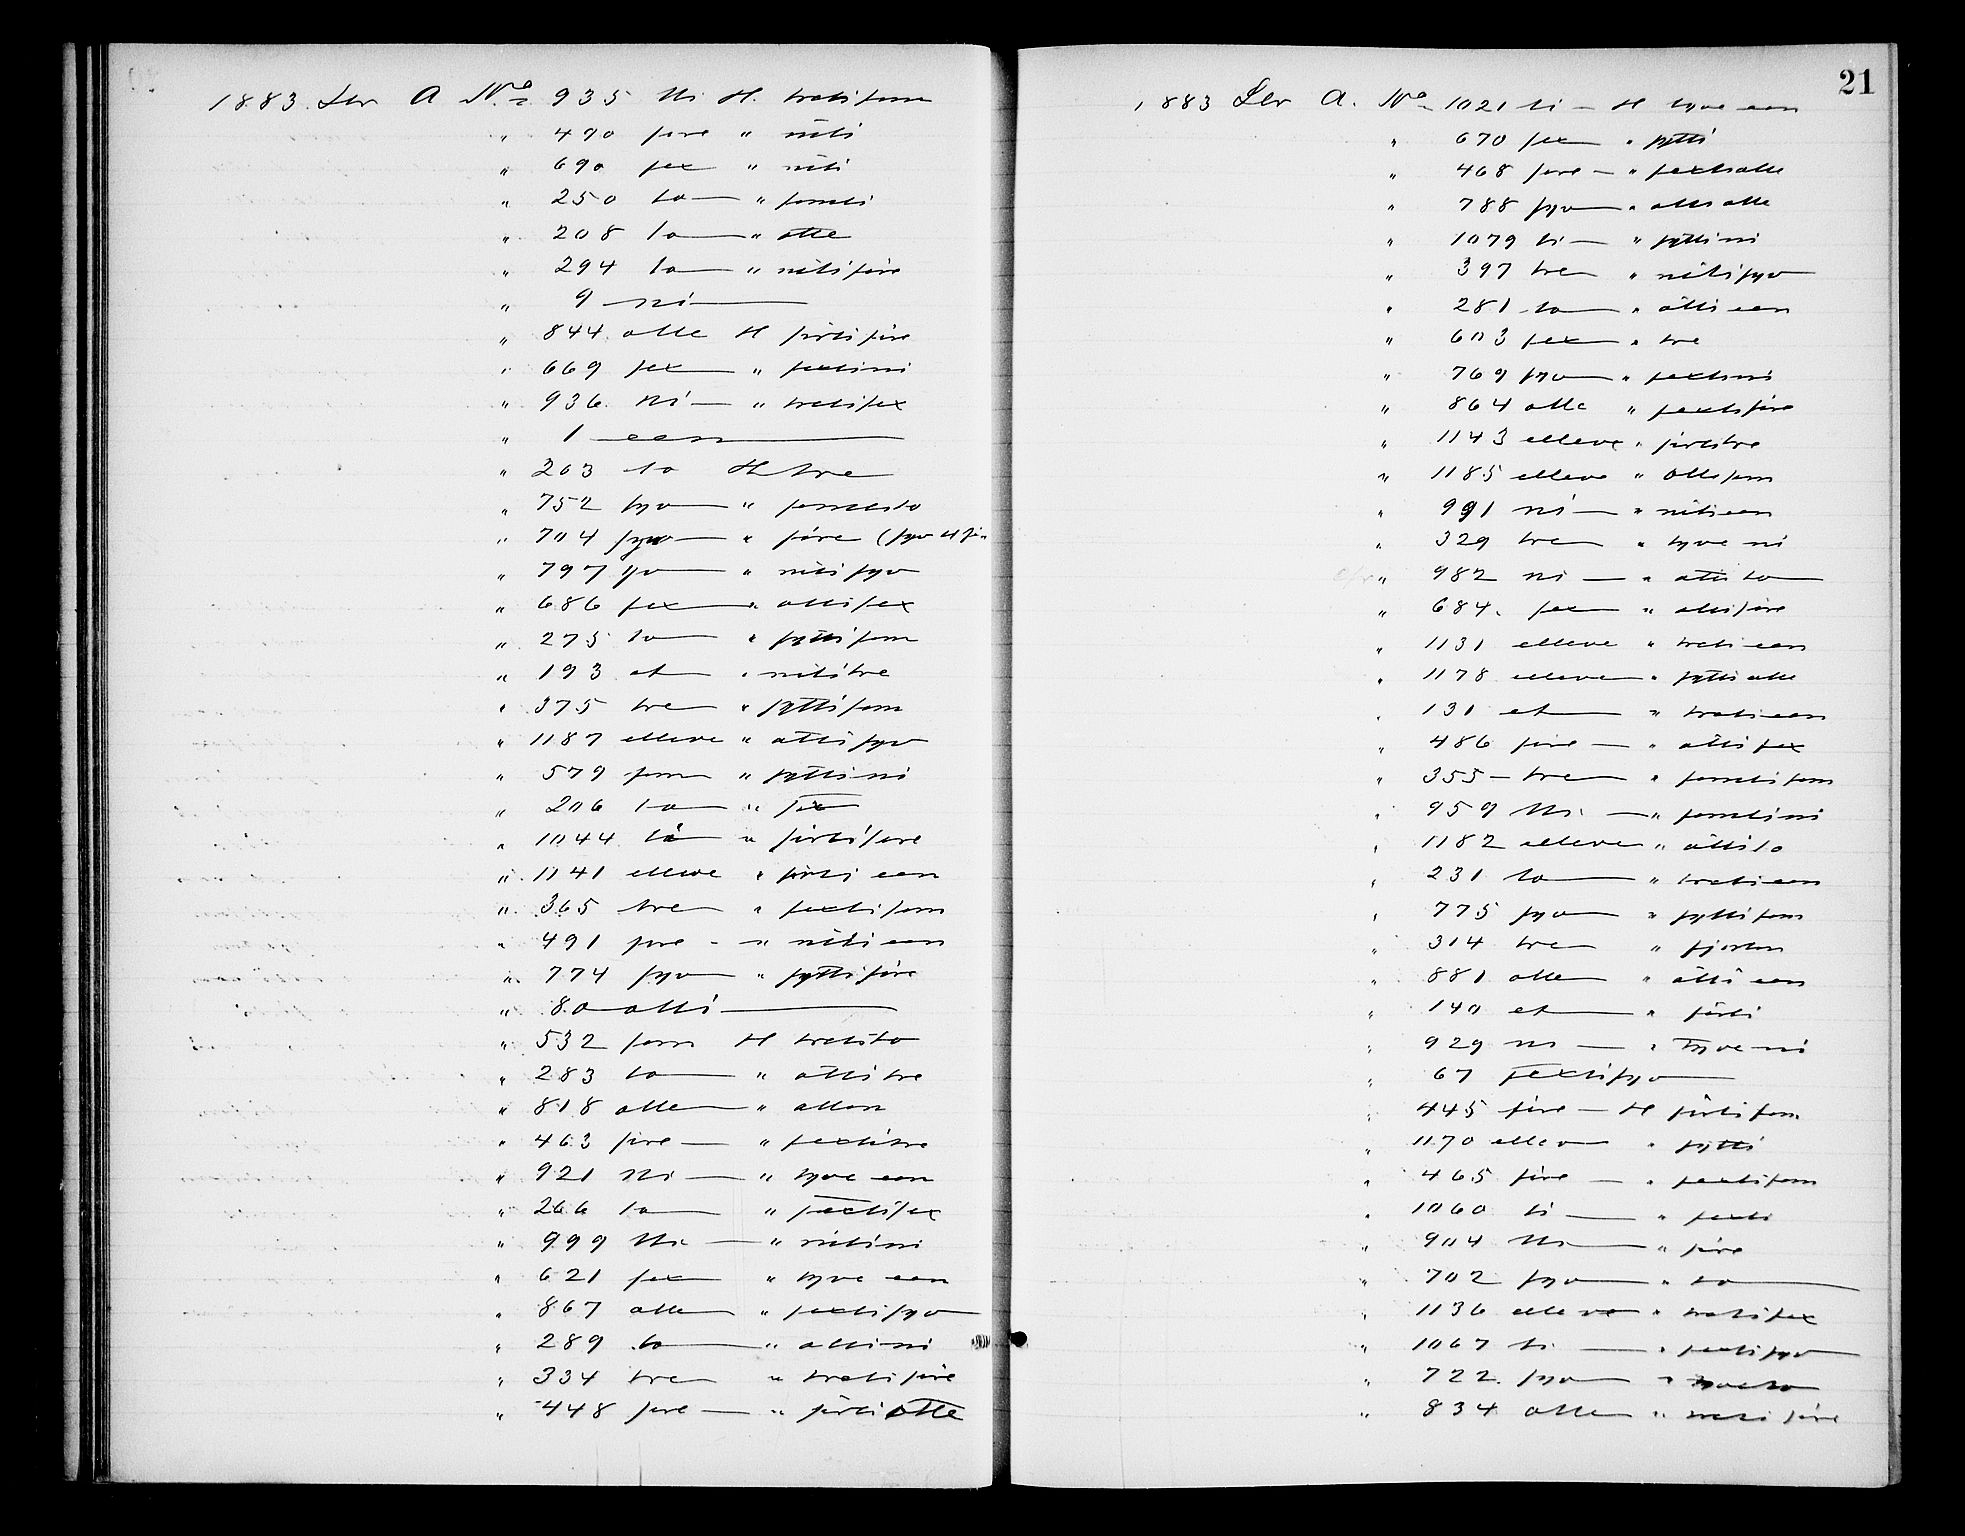 1883. Ltr A No 935 Ni H. tretifem
" 490 fire " niti
" 690 sex " niti
" 250 to — " femti
" 208 to — " otte
" 294 to — " nitifire
" 9 — ni —
" 844 otte H førtifire
" 669 sex — " sextini
" 936. Ni — " tretisex
" 1 — een —
" 203 to H tre —
" 752 syv — " femtito
" 704 syv — " fire (syv H fi
" 797 syv — " nitisyv
" 686 sex — " ottisex
" 275 to — " syttifem
" 193 et — " nititre
" 375 tre — " syttifem
" 1187 elleve " ottisyv
" 579 fem " syttini
" 206 to — " sex
" 1044 ti — " førtifire
" 1141 elleve " førti een
" 365 tre — " sextifem
" 491 fire - " niti een
" 774 syv — " syttifire
" 80 — otti —
" 532 fem H tretito
" 283 to — " ottitre
" 818 otte — " atten
" 463 fire — " sextitre
" 921 Ni — " tyve een
" 266 to — " sextisex
" 999 Ni — " nitini
" 621 sex — " tyve een
" 867 otte — " sextisyv
" 289 to — " ottini
" 334 tre — " tretifire
" 448 fire — " førtiotte
21
1883 Ltr A. No 1021 ti — H tyve een
" 670 sex — " sytti
" 468 fire — " sextiotte
" 788 syv — " ottiotte
" 1079 ti — " syttini
" 397 tre — " nitisyv
" 281 to — " otti een
" 603 sex — " tre
" 769 syv — " sextini
" 864 otte " sextifire
" 1143 elleve " førtitre
" 1185 elleve " ottifem
" 991 ni — " niti een
" 329 tre — " tyve ni
" 982 ni — " otti to —
" 684. sex — " ottifire
" 1131 elleve " treti een
" 1178 elleve — " syttiotte
" 131 et — " treti een
" 486 fire — " ottisex
" 355 — tre — " femtifem
" 959 Ni. — " femtini
" 1182 elleve — " ottito
" 231 to — " treti een
" 775 syv — " syttifem
" 314 tre — " fjorten
" 881 otte — " otti een
" 140 et — " førti
" 929 ni — " tyve ni
" 67 sextisyv —
" 445 fire — H førtifem
" 1170 elleve — " sytti
" 465 fire — " sextifem
" 1060 ti — " sexti
" 904 Ni — " fire
" 702 syv — " to —
" 1136 elleve " tretisex
" 1067 ti — " sextisyv
" 722. syv — " tyveto
" 834 otte — " tretifire